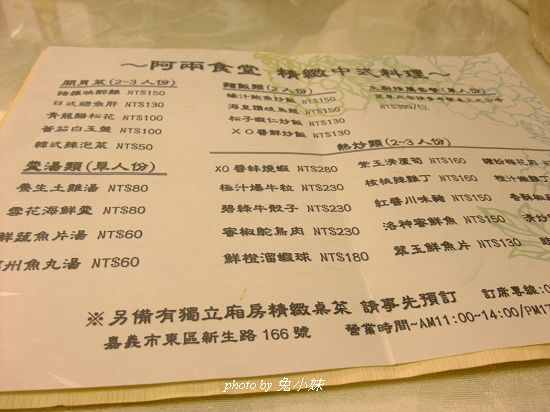 ～阿兩食堂 精緻中式料理～
開胃菜(2~3人份)
諸羅映醉雞 NT$150
日式鱈魚肝 NT$130
青龍醋松花 NT$100
蕃茄白玉盤 NT$100
韓式辣泡菜 NT$50
羹湯類(單人份)
養生土雞湯 NT$80
雪花海鮮羹 NT$80
鮮蔬魚片湯 NT$60
州魚丸湯 NT$60
麵飯類(2人份)
蠔汁鮑魚炒飯 NT$150
海皇讚岐烏龍 NT$150
松子蝦仁炒飯 NT$130
XO醬鮮炒飯 NT$130
主廚推薦套餐(單人份)
NT$399/位
熱炒類(2~3人份)
XO醬蚌燒蝦 NT$280
極汁爆牛粒 NT$230
碧綠牛骰子 NT$230
蜜椒鴕鳥肉 NT$230
鮮橙溜蝦球 NT$180
紫玉濱蘆筍 NT$160
核桃辣雞丁 NT$160
紅醬川味豬 NT$150
洛神蜜鮮魚 NT$150
翠玉鮮魚片 NT$130
繽紛梅花肉
橙汁嫩雞
香酥椒
※另備有獨立廂房精緻桌菜 請事先預訂 訂席專線:0
嘉義市東區新生路166號 營業時間~AM11:00~14:00/PM17
photo by 兔小妹